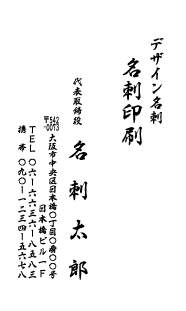 デザイン名刺
名刺印刷
代表取締役
名刺太郎
〒542-0073
大阪市中央区日本橋〇丁目〇番〇〇号
日本橋ビル一F
TEL 〇六-六六三六-八五八三
携帯 〇九〇-一二三四-五六七八